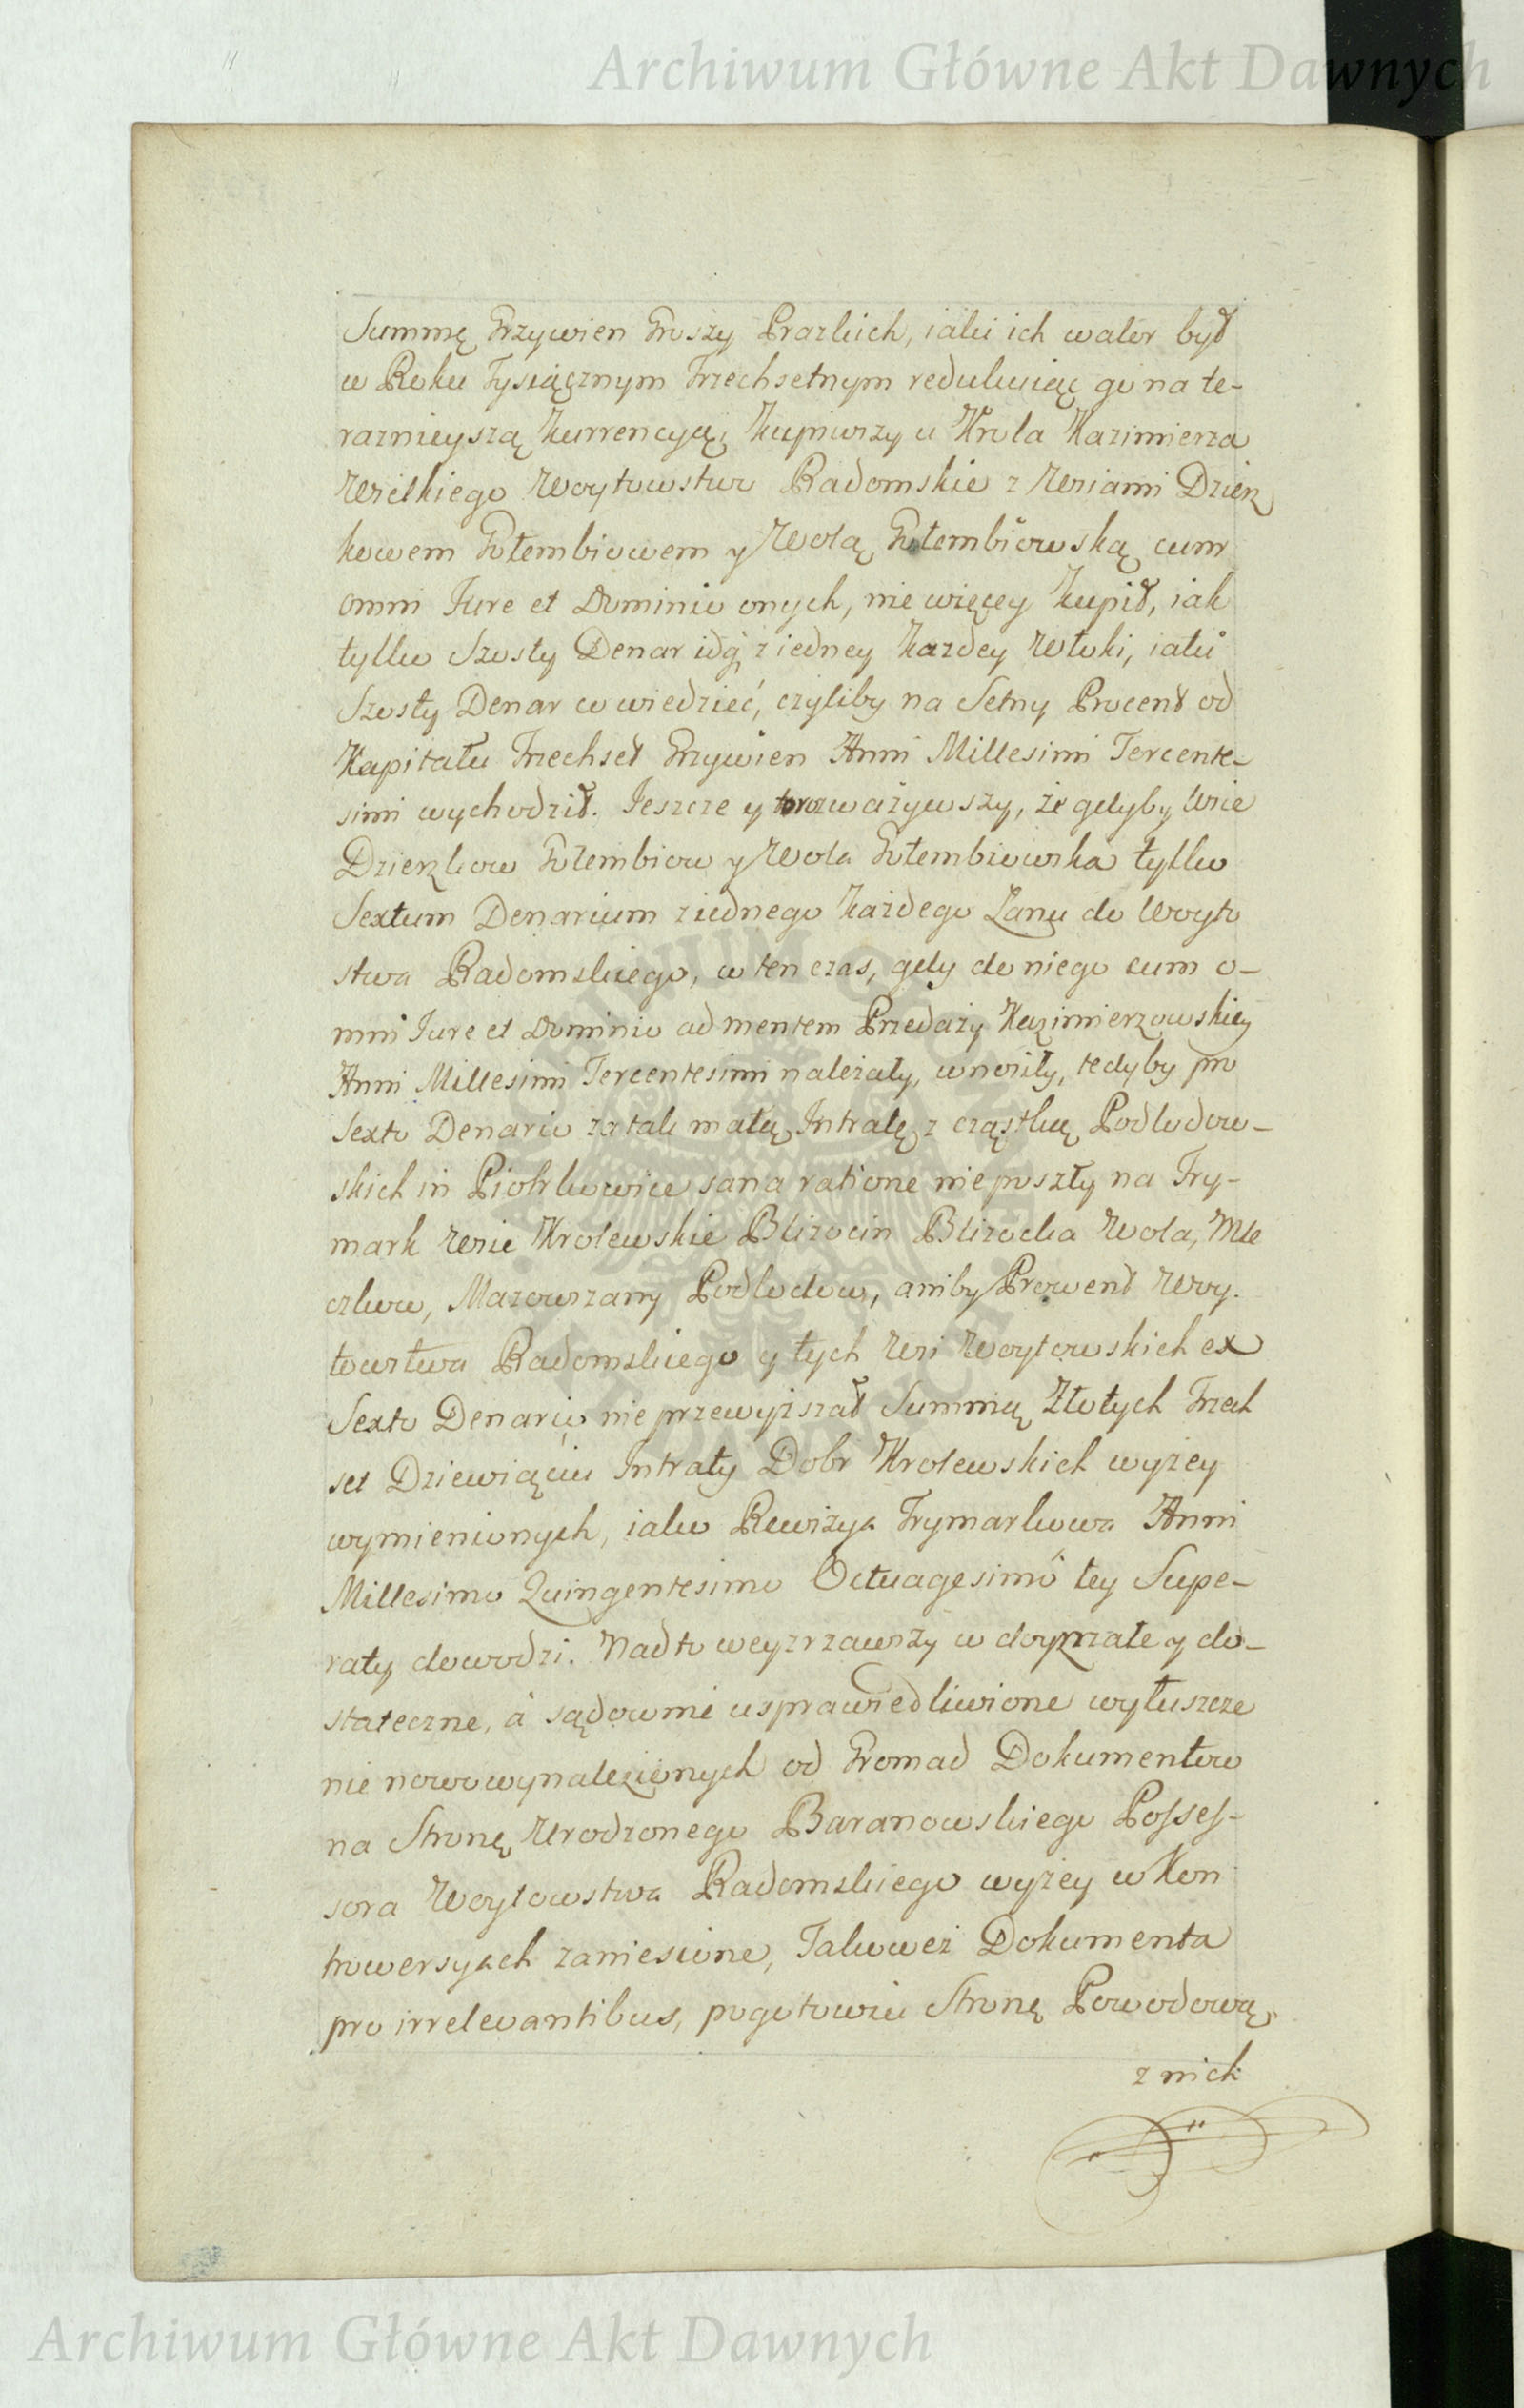 Archiwum Główne Akt Dawnych
Summę Grzywien Groszy Prazkich, iaki ich walor był
w Roku Tysiącznym Trzechsetnym redukuiąc go na te-
raznieyszą kurrencyą, kupiwszy u Krola Kazimierza
Wielkiego Woytowstwo Radomskie z Wsiami Dzierz
kowem Gołembiowem y Wolą Gołembiowską cum
omni Jure et Dominio onych, nie więcey kupił, iak
tylko Szosty Denar idą z iedney kazdey Włoki, iaki
Szosty Denar co wiedzieć, czyliby na Setny Procent od
Kapitału Trzechset Grzywien Anni Millesimi Tercente-
simi wychodził. Jeszcze y to rozważywszy, że gdyby Wsie
Dzierzkow Gołembiow y Wola Gołembiowska tylko
Sextum Denarium z iednego każdego Łanu do Woyto
stwa Radomskiego, w ten czas, gdy do niego cum o-
mni Jure et Dominio ad mentem Przedaży Kazimierzowskiey
Anni Millesimi Tercentesimi należały, wnosiły, tedyby pro
Sexto Denario za tak małą Intratę z cząstką Podlodow-
skich in Piotrkowice sana ratione nie poszły na Fry-
mark Wsie Krolewskie Blizocin Blizocka Wola, Mle
czkow, Mazowszany Podlodow, aniby Prowent Woy-
towstwa Radomskiego y tych Wsi Woytowskich ex
Sexto Denario nie przewyższał Summą Złotych Trzech
set Dziewiąciu Intraty Dobr Krolewskich wyżey
wymienionych, iako Rewizya Frymarkowa Anni
Millesimo Quingentesimo Octuagesimo tey Supe-
raty dowodzi. Nadto weyzrzawszy w doyrzałe y do-
stateczne, à sądownie usprawiedliwione wyłuszcze
nie nowowynalezionych od Gromad Dokumentow
na Stronę Urodzonego Baranowskiego Posses-
sora Woytowstwa Radomskiego wyżey w Kon
trowersyach zaniesione, Takoweż Dokumenta
pro irrelevantibus, pogotowiu Stronę Powodową
z nich
Archiwum Główne Akt Dawnych